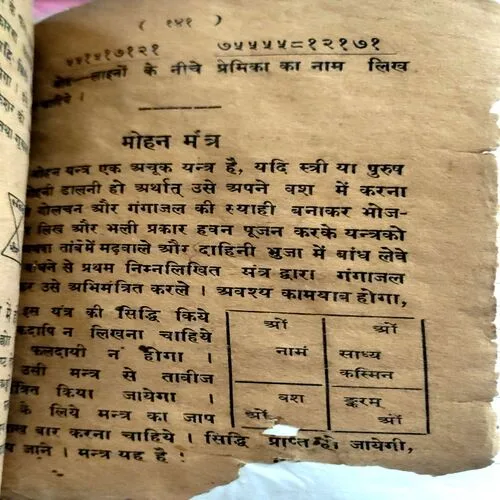 ( १४१ )
५५१५१७१२१ ७५५५५८१२१७१
नोट—लाइनों के नीचे प्रेमिका का नाम लिख
चाहिये ।
मोहन मंत्र
मोहन यन्त्र एक अचूक यन्त्र है, यदि स्त्री या पुरुष
डालनी हो अर्थात् उसे अपने वश में करना
गोलचन और गंगाजल की स्याही बनाकर भोज-
लिख और भली प्रकार हवन पूजन करके यन्त्रको
तांबेमें मढ़वाले और दाहिनी भुजा में बांध लेवे
से प्रथम निम्नलिखित मंत्र द्वारा गंगाजल
उसे अभिमंत्रित करले । अवश्य कामयाब होगा,
इस यंत्र की सिद्धि किये
कदापि न लिखना चाहिये
फलदायी न होगा ।
उसी मन्त्र से तावीज
किया जायेगा ।
के लिये मन्त्र का जाप
बार करना चाहिये । सिद्धि प्राप्त हो जायेगी,
जाने । मन्त्र यह है :
ओं ओं
नामं साध्य
कस्मिन
वश ङ्करम्
ओं ओं